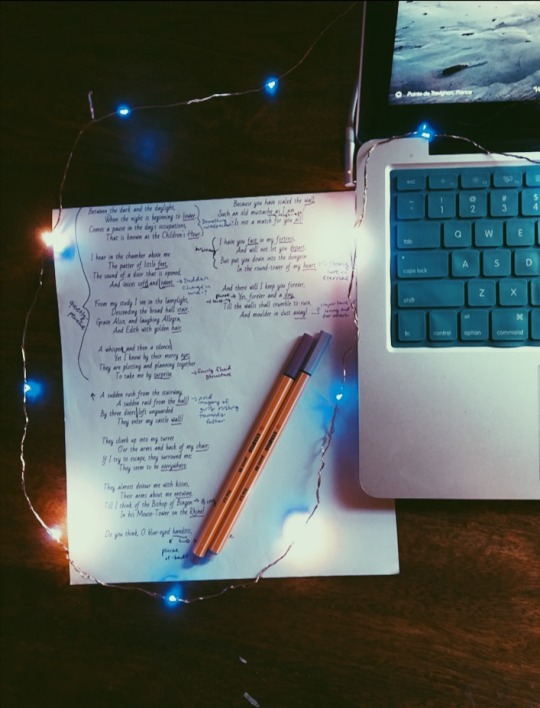 Between the dark and the daylight,
When the night is beginning to lower,
Comes a pause in the day's occupations,
That is known as the Children's Hour.
I hear in the chamber above me
The patter of little feet,
The sound of a door that is opened,
And voices soft and sweet.
→ Sudden
change in
From my study I see in the lamplight,
Descending the broad hall stair,
Grave Alice, and laughing Allegra,
And Edith with golden hair.
A whisper, and then a silence;
Yet I know by their merry eyes
They are plotting and planning together
To take me by surprise.
structure
A sudden rush from the stairway,
A sudden raid from the hall!
By three doors left unguarded
They enter my castle wall!
→ vivid
imagery of
girls rushing
towards
father
They climb up into my turret
O'er the arms and back of my chair;
If I try to escape, they surround me;
They seem to be everywhere.
They almost devour me with kisses,
Their arms about me entwine,
Till I think of the Bishop of Bingen
In his Mouse-Tower on the Rhine!
Do you think, O blue-eyed banditti,
Because you have scaled the wall,
Such an old mustache as I am
Is not a match for you all!
I have you fast in my fortress,
And will not let you depart,
But put you down into the dungeon
In the round-tower of my heart.
And there will I keep you forever,
Yes, forever and a day,
Till the walls shall crumble to ruin,
And moulder in dust away!
Pointe de Trévignon, France
esc
~ ! @ # $
` 1 2 3 4
tab Q W E
caps lock A S D
shift Z X
fn control alt option command